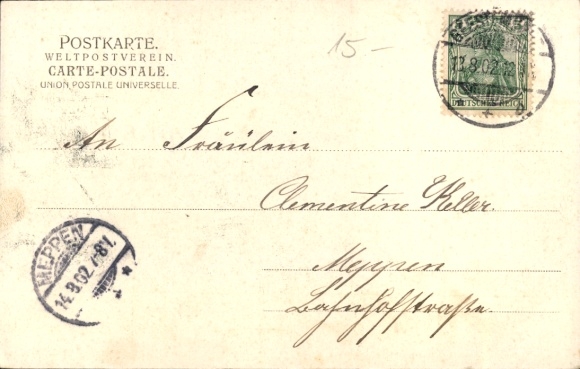 POSTKARTE.
WELTPOSTVEREIN.
CARTE-POSTALE.
UNION POSTALE UNIVERSELLE.
15-
13.8.02
DEUTSCHES REICH
An Fräulein
Clementine Keller.
Meppen
Bahnhofstraße.
MEPPEN
14.8.02